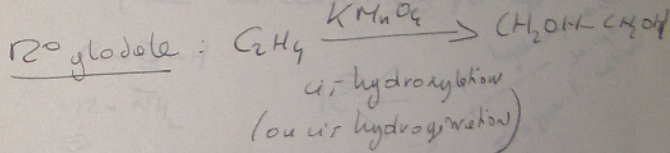 R° globale : C2H4 KMnO4 → CH2OH-CH2OH
cis-hydroxylation
(ou cis hydrogénation)